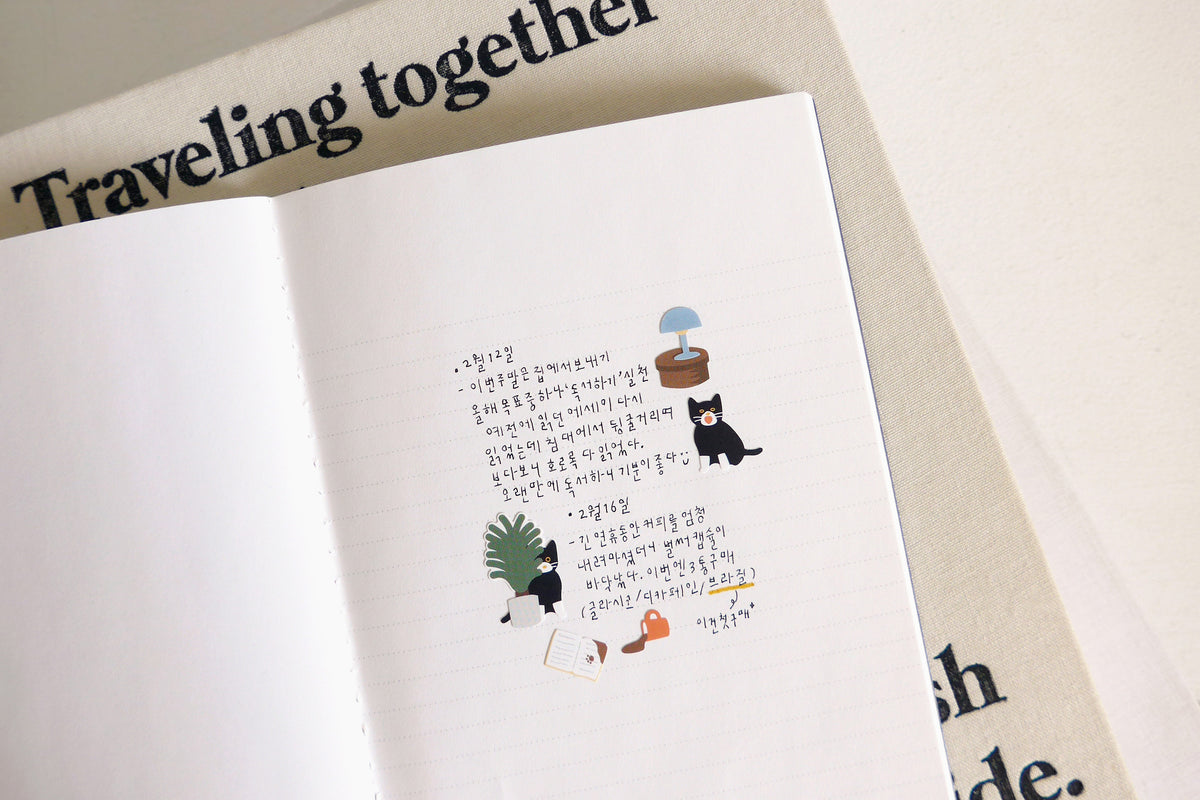 Traveling together
• 2월 12일
- 이번주말은 집에서 보내기
올해 목표 중 하나 '독서하기' 실천
예전에 읽던 에세이 다시
읽었는데 침대에서 뒹굴거리며
보다보니 호로록 다 읽었다.
오랜만에 독서하니 기분이 좋다 :)
• 2월 16일
- 긴 연휴동안 커피를 엄청
내려마셨더니 벌써 캡슐이
바닥났다. 이번엔 3통 구매
(클라시코/디카페인/브라질)
이건 첫구매*
sh
ide.